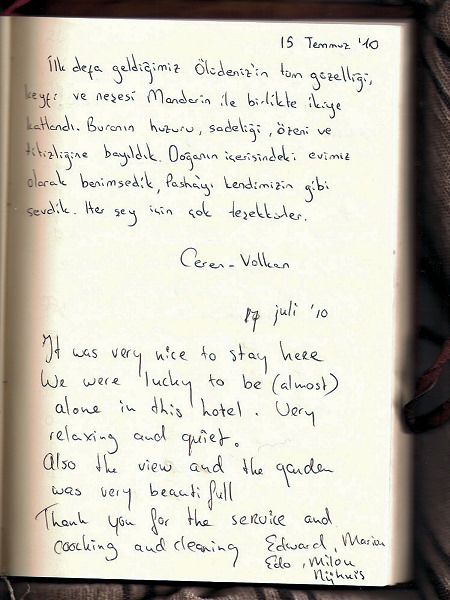 15 Temmuz '10
İlk defa geldiğimiz Ölüdeniz'in tüm güzelliği,
keyfi ve neşesi Mandarin ile birlikte ikiye
katlandı. Buranın huzuru, sadeliği, özeni ve
titizliğine bayıldık. Doğanın içerisindeki evimiz
olarak benimsedik, Pasha'yı kendimizin gibi
sevdik. Her şey için çok teşekkürler.
Ceren-Volkan
17 juli '10
It was very nice to stay here
We were lucky to be (almost)
alone in this hotel. Very
relaxing and quiet.
Also the view and the garden
was very beautifull
Thank you for the service and
coocking and cleaning Edward, Marion
Edo, Milou
Nijhuis